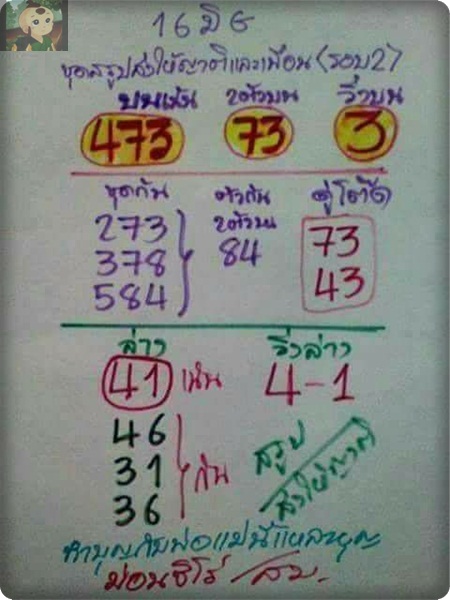 16 มิย
ชุดสรุปส่งให้ญาติและเพื่อน(รอบ2)
บนเน้น 2ตัวบน วิ่งบน
473 73 3
ชุดกัน ตัวกัน 2ตัวบน คู่โต๊ด
273 84 73
378 43
584
ล่าง วิ่งล่าง
41 เน้น 4-1
46
31 กัน สรุป
36 ส่งให้ญาติ
ทำบุญกับพ่อแม่นี่แหละบุญ